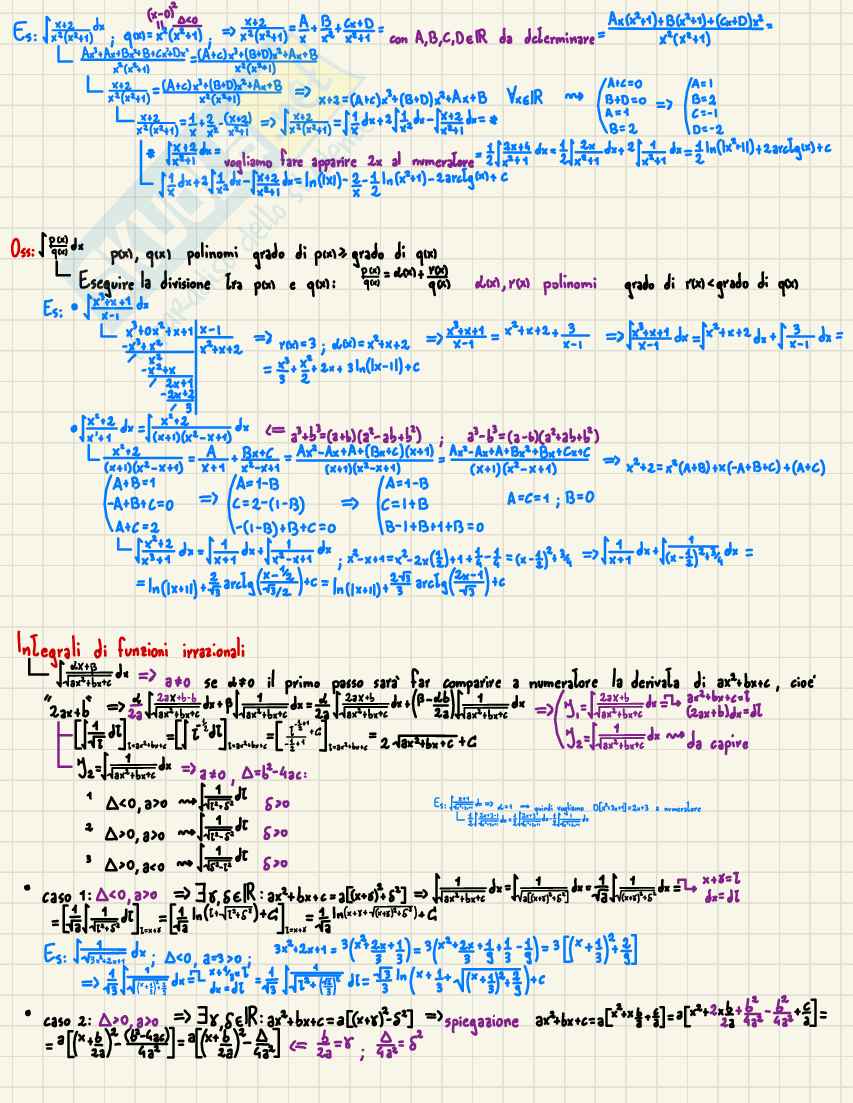 (x-0)² Δ<0
Es: ∫ x+2/x²(x²+1) dx ; q(x)=x²(x²+1) ; => x+2/x²(x²+1) = A/x + B/x² + Cx+D/x²+1 = con A,B,C,D∈ℝ da determinare = Ax(x²+1)+B(x²+1)+(Cx+D)x²/x²(x²+1) =
Ax³+Ax+Bx²+B+Cx³+Dx²/x²(x²+1) = (A+C)x³+(B+D)x²+Ax+B/x²(x²+1)
x+2/x²(x²+1) = (A+C)x³+(B+D)x²+Ax+B/x²(x²+1) => x+2=(A+C)x³+(B+D)x²+Ax+B ∀x∈ℝ ⇝ (A+C=0 B+D=0 A=1 B=2 => (A=1 B=2 C=-1 D=-2
x+2/x²(x²+1) = 1/x + 2/x² - (x+2)/x²+1 => ∫ x+2/x²(x²+1) = ∫ 1/x dx + 2∫ 1/x² dx - ∫ x+2/x²+1 dx = *
* ∫ x+2/x²+1 dx = vogliamo fare apparire 2x al numeratore = 1/2 ∫ 2x+4/x²+1 dx = 1/2 ∫ 2x/x²+1 dx + 2∫ 1/x²+1 dx = 1/2 ln(|x²+1|)+2arctg(x)+c
∫ 1/x dx + 2∫ 1/x² dx - ∫ x+2/x²+1 dx = ln(|x|) - 2/x - 1/2 ln(x²+1) - 2arctg(x) + c
Oss: ∫ p(x)/q(x) dx p(x), q(x) polinomi grado di p(x) ≥ grado di q(x)
Eseguire la divisione tra p(x) e q(x): p(x)/q(x) = d(x) + r(x)/q(x) d(x), r(x) polinomi grado di r(x) < grado di q(x)
Es: • ∫ x³+x+1/x-1 dx
x³+0x²+x+1 | x-1 => r(x)=3 ; d(x)=x²+x+2 => x³+x+1/x-1 = x²+x+2 + 3/x-1 => ∫ x³+x+1/x-1 dx = ∫ x²+x+2 dx + ∫ 3/x-1 dx =
-x³+x² x²+x+2
x² = x³/3 + x²/2 + 2x + 3 ln(|x-1|) + c
-x²+x
2x+1
-2x+2
3
• ∫ x²+2/x³+1 dx = ∫ x²+2/(x+1)(x²-x+1) dx <= a³+b³=(a+b)(a²-ab+b²) ; a³-b³=(a-b)(a²+ab+b²)
x²+2/(x+1)(x²-x+1) = A/x+1 + Bx+C/x²-x+1 = Ax²-Ax+A+(Bx+C)(x+1)/(x+1)(x²-x+1) = Ax²-Ax+A+Bx²+Bx+Cx+C/(x+1)(x²-x+1) => x²+2=x²(A+B)+x(-A+B+C)+(A+C)
(A+B=1 => (A=1-B => (A=1-B A=C=1 ; B=0
-A+B+C=0 C=2-(1-B) C=1+B
A+C=2 -(1-B)+B+C=0 B-1+B+1+B=0
∫ x²+2/x³+1 dx = ∫ 1/x+1 dx + ∫ 1/x²-x+1 dx ; x²-x+1=x²-2x(1/2)+1+1/4-1/4=(x-1/2)²+3/4 => ∫ 1/x+1 dx + ∫ 1/(x-1/2)²+3/4 dx =
= ln(|x+1|)+2/√3 arctg(x-1/2/√3/2)+c = ln(|x+1|)+2√3/3 arctg(2x-1/√3)+c
Integrali di funzioni irrazionali
∫ αx+β/√ax²+bx+c dx => a≠0 se α≠0 il primo passo sarà far comparire a numeratore la derivata di ax²+bx+c , cioè
"2ax+b" => α/2a ∫ 2ax+b-b/√ax²+bx+c dx + β∫ 1/√ax²+bx+c dx = α/2a ∫ 2ax+b/√ax²+bx+c dx + (β-αb/2a)∫ 1/√ax²+bx+c dx => (y₁=∫ 2ax+b/√ax²+bx+c dx = ax²+bx+c=t (2ax+b)dx=dt
[∫ 1/√t dt] t=ax²+bx+c = [∫ t^-1/2 dt] t=ax²+bx+c = [t^-1/2+1/-1/2+1 + c] t=ax²+bx+c = 2√ax²+bx+c + c y₂=∫ 1/√ax²+bx+c dx ⇝ da capire
y₂=∫ 1/√ax²+bx+c => a≠0 , Δ=b²-4ac:
1 Δ<0, a>0 ⇝ ∫ 1/√t²+δ² dt δ>0
2 Δ>0, a>0 ⇝ ∫ 1/√t²-δ² dt δ>0
3 Δ>0, a<0 ⇝ ∫ 1/√δ²-t² dt δ>0
• caso 1: Δ<0, a>0 => ∃ γ,δ∈ℝ: ax²+bx+c=a[(x+γ)²+δ²] => ∫ 1/√ax²+bx+c dx = ∫ 1/√a[(x+γ)²+δ²] dx = 1/√a ∫ 1/√(x+γ)²+δ² dx = x+γ=t dx=dt
= [1/√a ∫ 1/√t²+δ² dt] t=x+γ = [1/√a ln(t+√t²+δ²)+c] t=x+γ = 1/√a ln(x+γ+√(x+γ)²+δ²)+c
Es: ∫ 1/√3x²+2x+1 dx ; Δ<0, a=3>0 ; 3x²+2x+1 = 3(x²+2/3x+1/3) = 3(x²+2/3x+1/9+1/3-1/9) = 3[(x+1/3)²+2/9]
=> 1/√3 ∫ 1/√(x+1/3)²+2/9 dx = x+1/3=t dx=dt = 1/√3 ∫ 1/√t²+(√2/3)² dt = √3/3 ln(x+1/3+√(x+1/3)²+2/9)+c
• caso 2: Δ>0, a>0 => ∃ γ,δ∈ℝ: ax²+bx+c=a[(x+γ)²-δ²] => spiegazione ax²+bx+c=a[x²+x b/a+c/a]=a[x²+2x b/2a+b²/4a²-b²/4a²+c/a]=
= a[(x+b/2a)²-(b²-4ac)/4a²]=a[(x+b/2a)²-Δ/4a²] <= b/2a=γ ; Δ/4a²=δ²